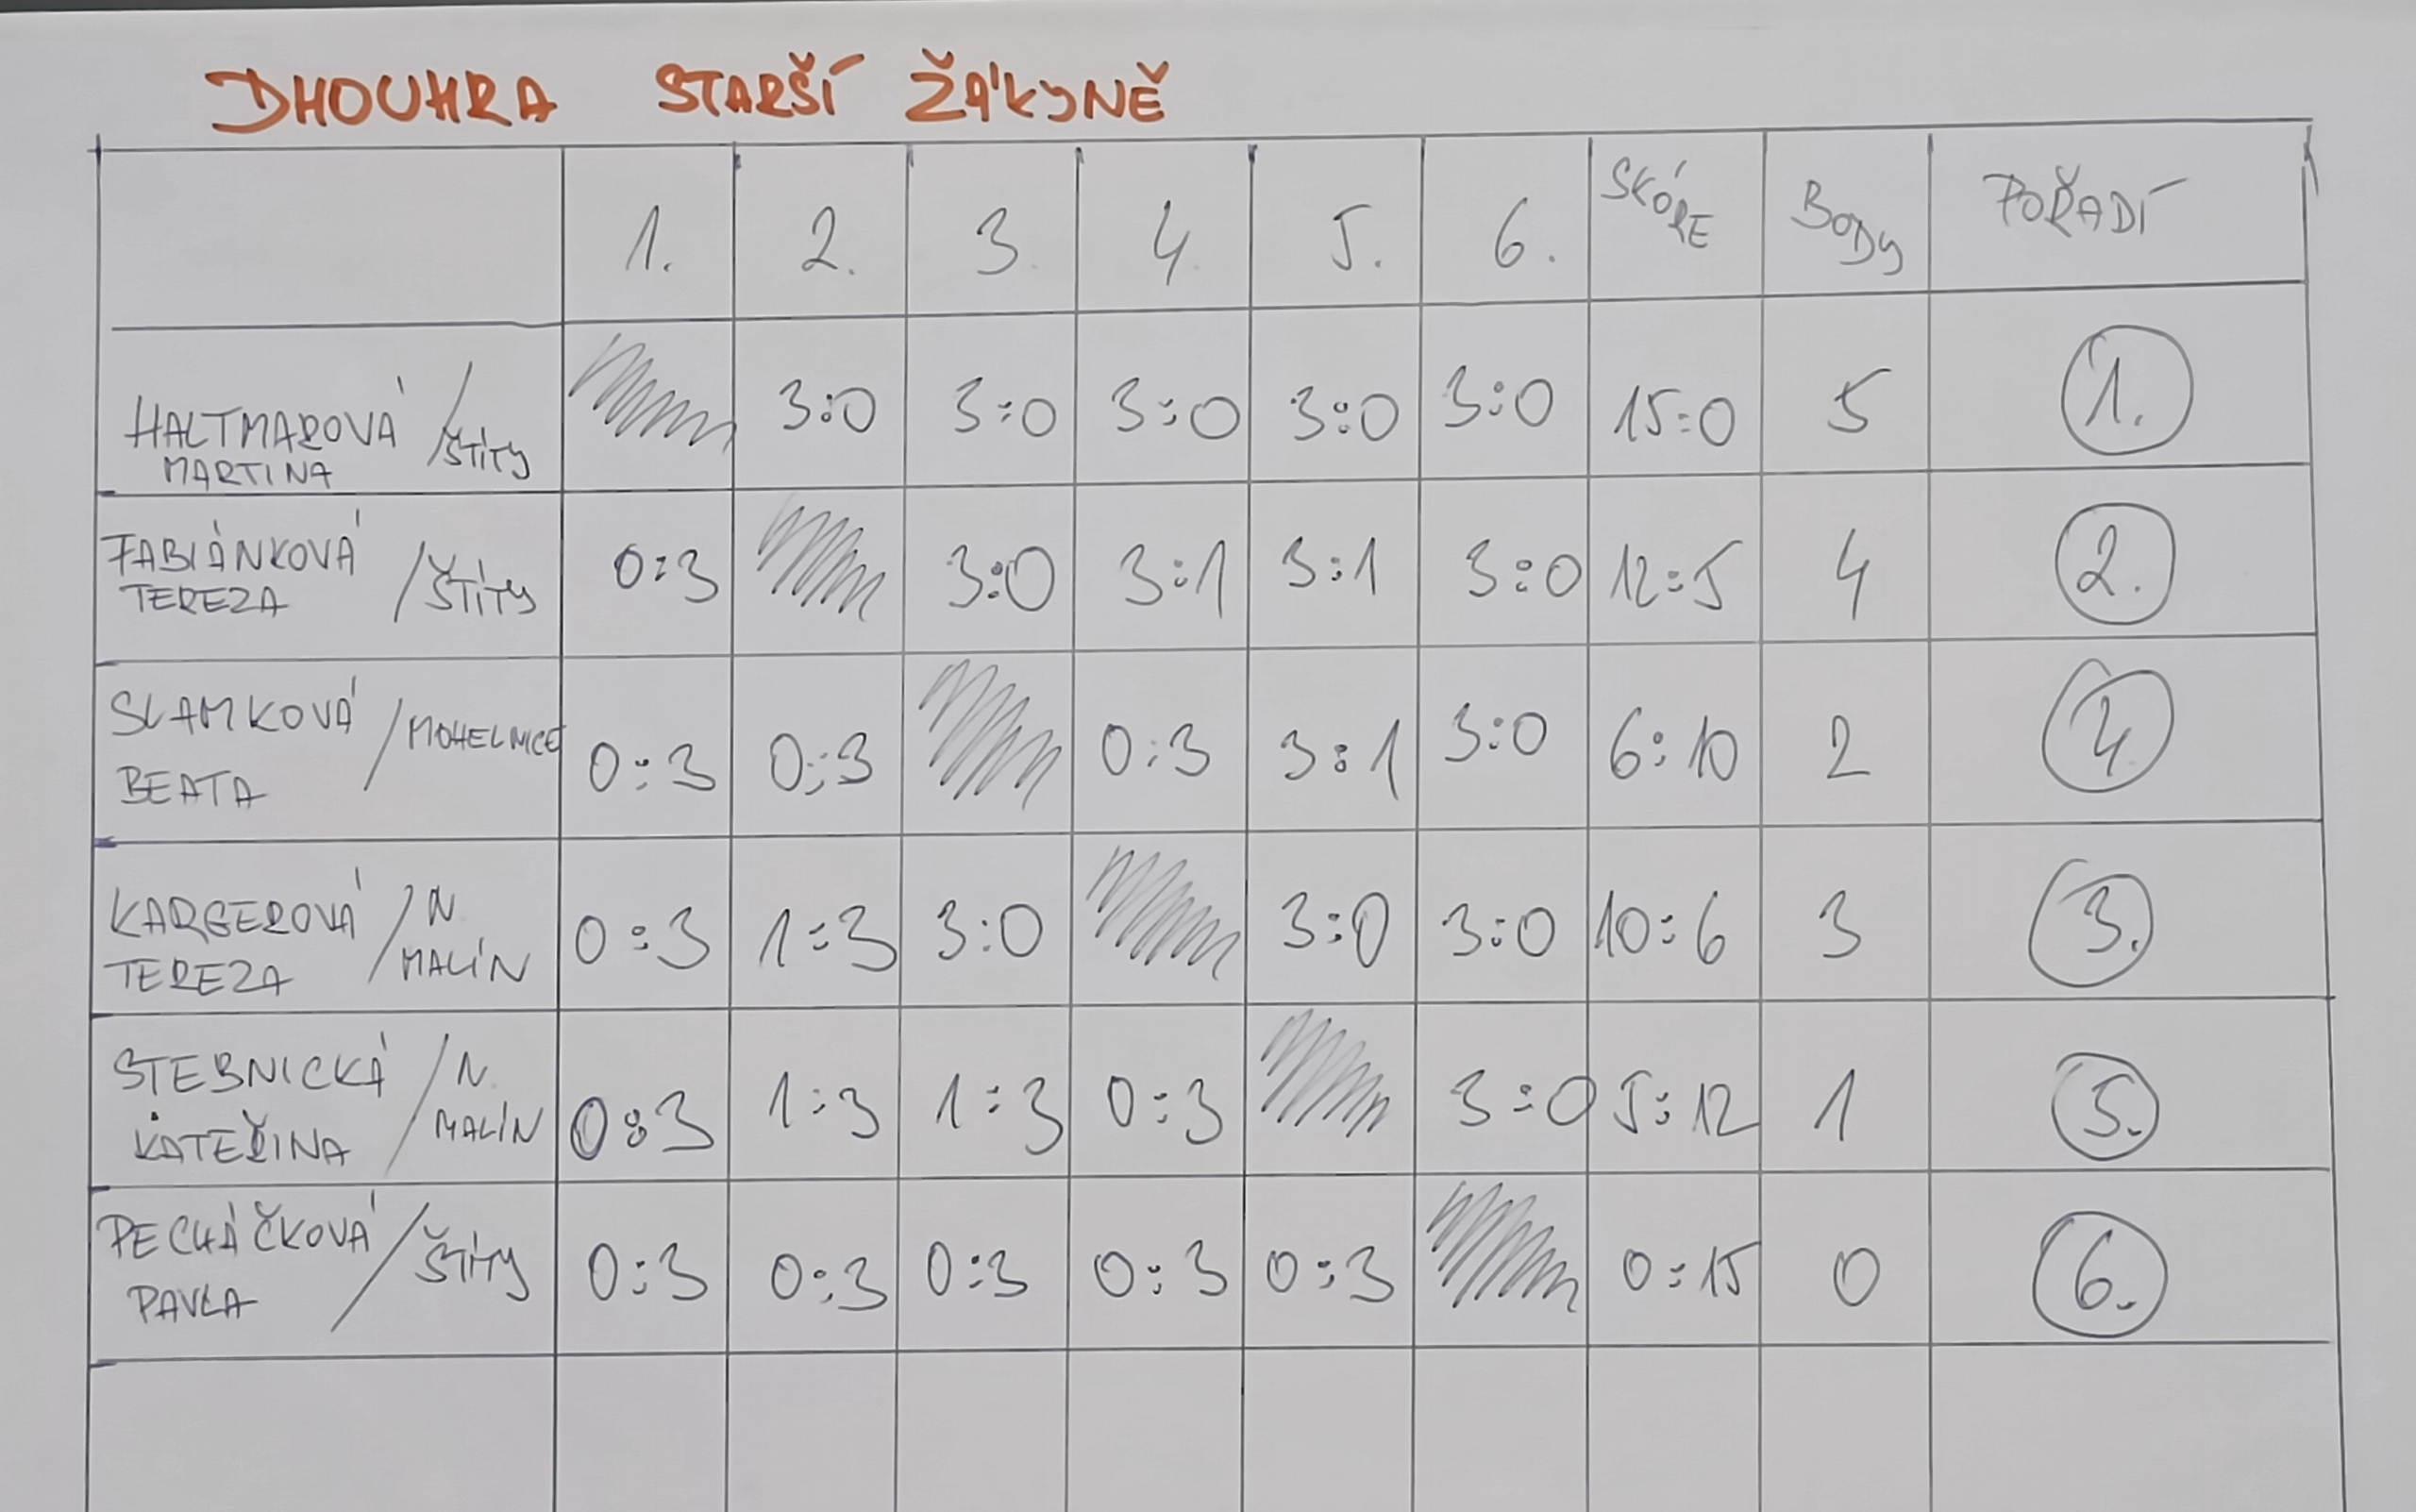 DHOUHRA STARŠÍ ŽÁKYNĚ
1. 2. 3. 4. 5. 6. SKÓRE BODY POŘADÍ
HALTMAROVÁ MARTINA / ŠTÍTY 3:0 3:0 3:0 3:0 3:0 15:0 5 1.
FABIÁNKOVÁ TEREZA / ŠTÍTY 0:3 3:0 3:1 3:1 3:0 12:5 4 2.
SLAMKOVÁ BEATA / MOHELNICE 0:3 0:3 0:3 3:1 3:0 6:10 2 4.
KARGEROVÁ TEREZA / N. MALÍN 0:3 1:3 3:0 3:0 3:0 10:6 3 3.
STEBNICKÁ KATEŘINA / N. MALÍN 0:3 1:3 1:3 0:3 3:0 5:12 1 5.
PECHÁČKOVÁ PAVLA / ŠTÍTY 0:3 0:3 0:3 0:3 0:3 0:15 0 6.